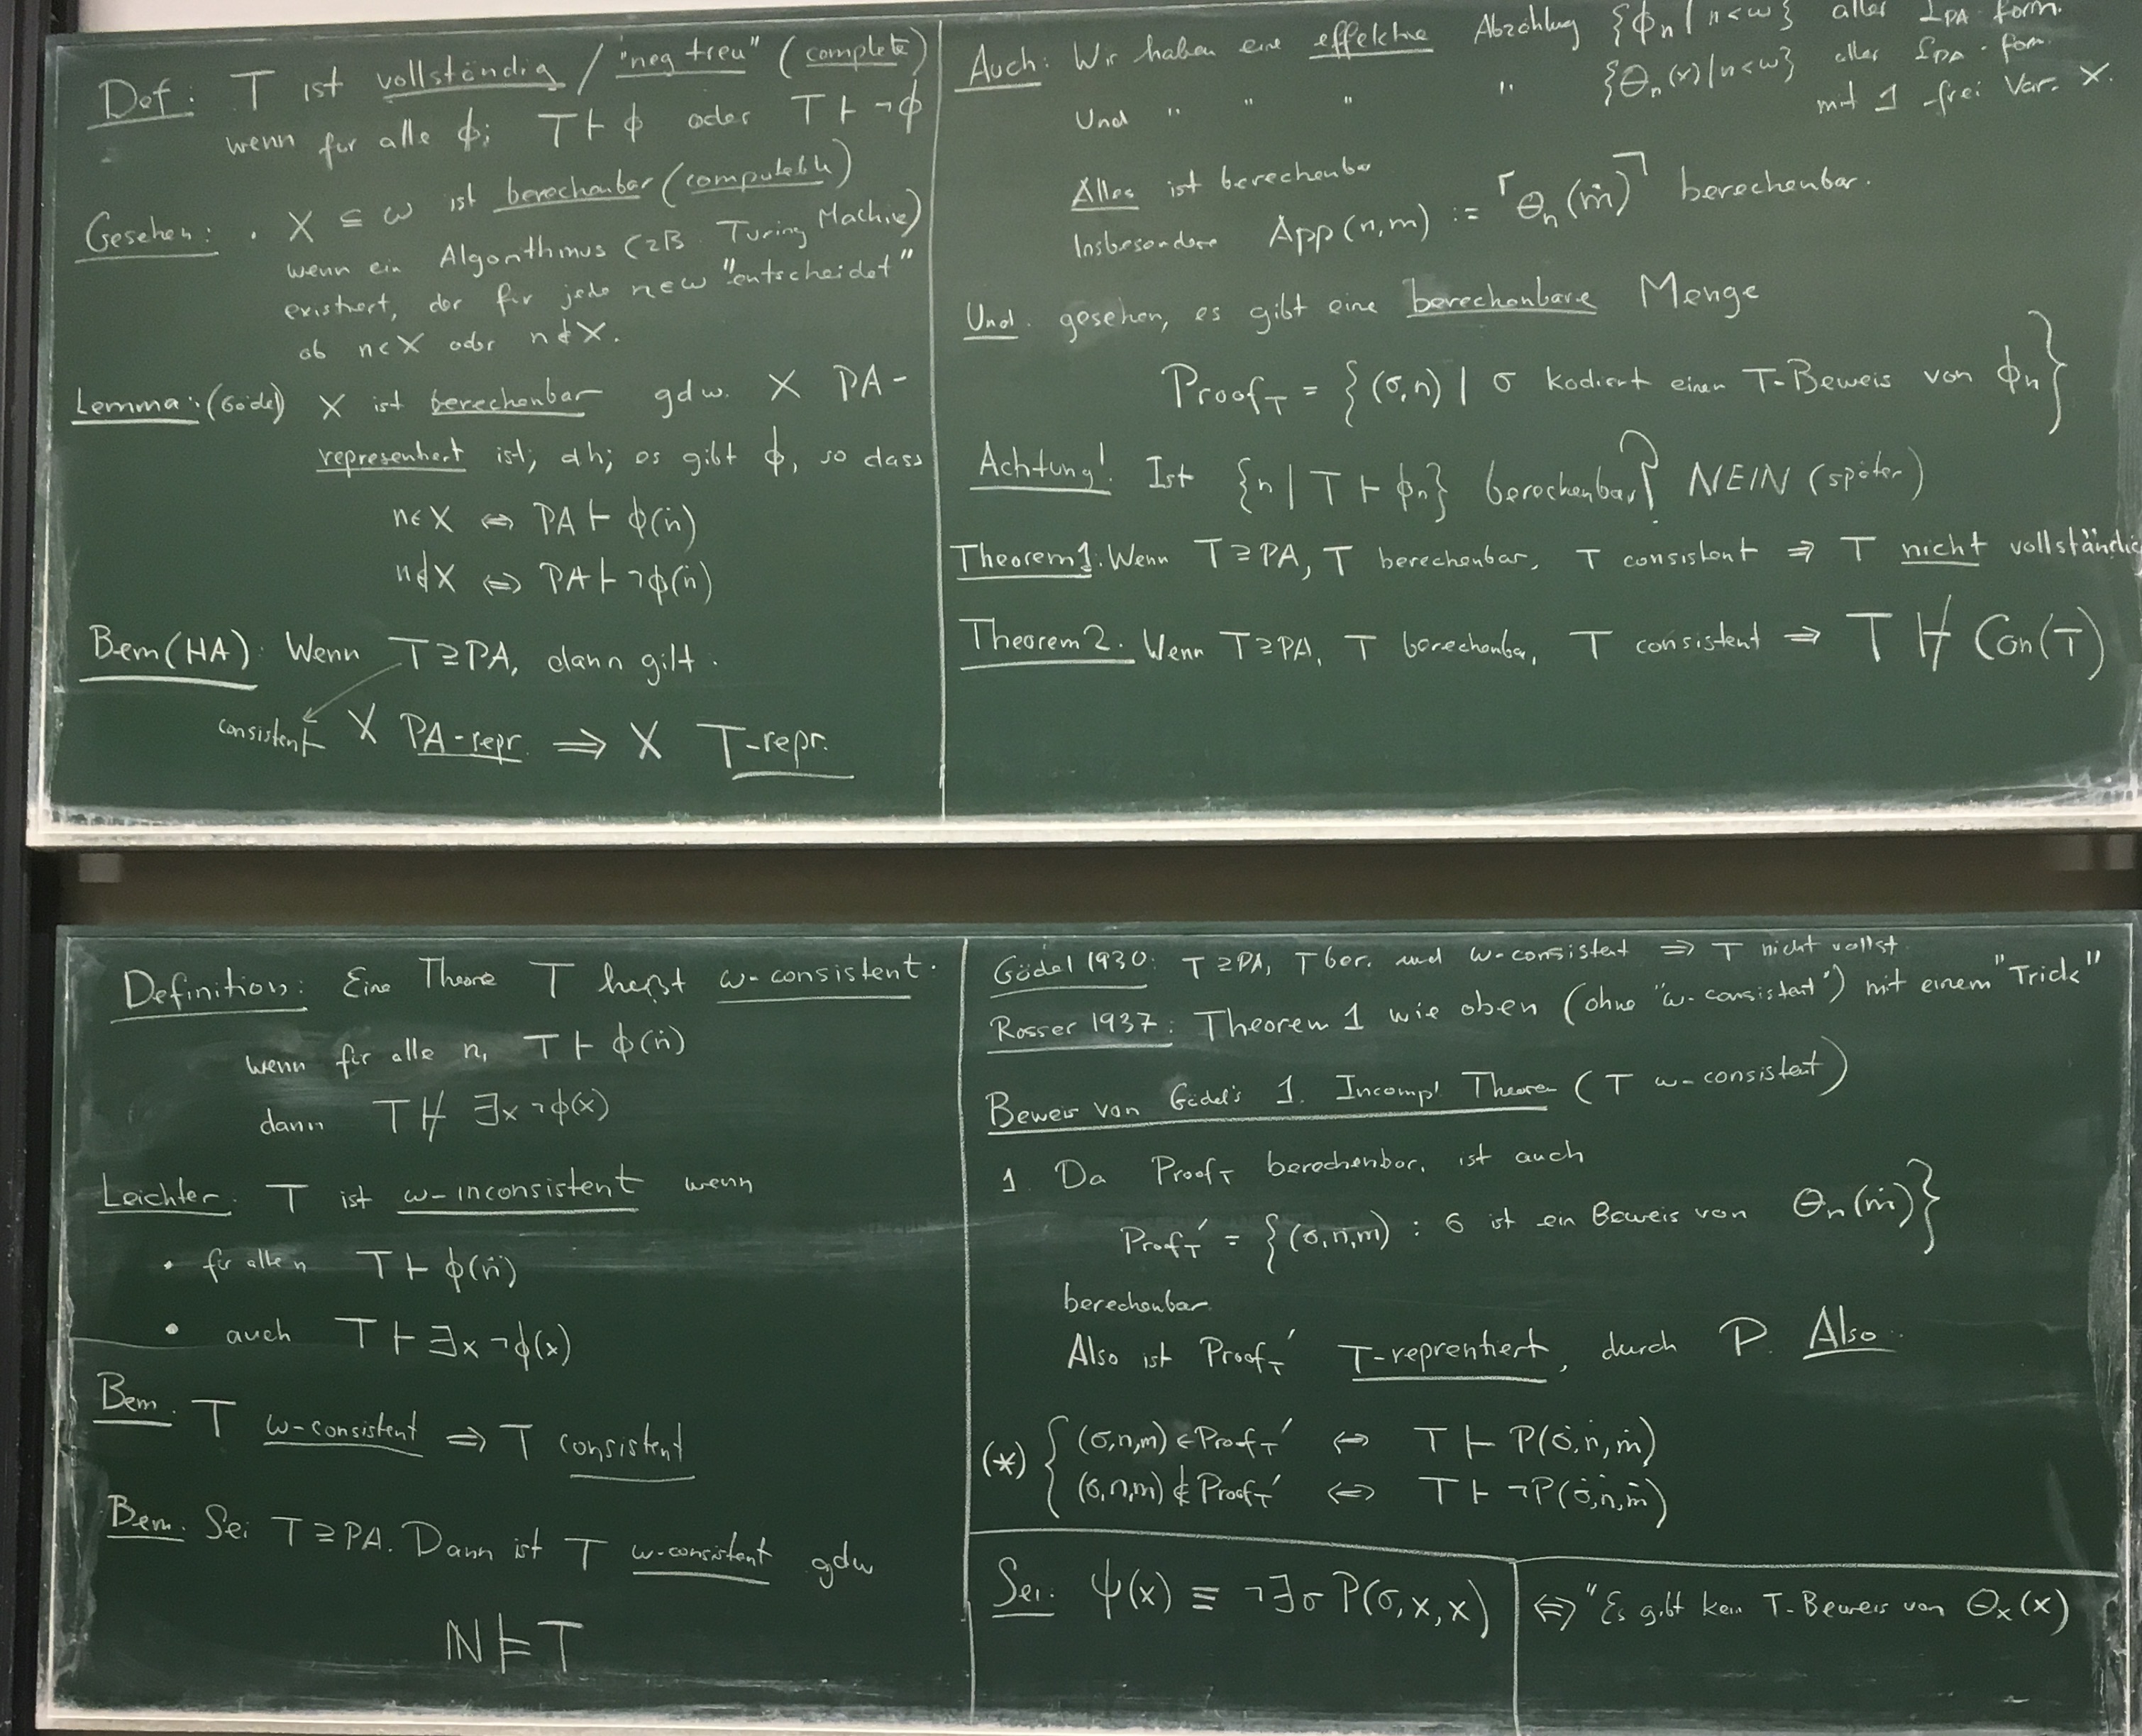 Def: T ist vollständig / "neg treu" (complete)
wenn für alle ϕ; T ⊢ ϕ oder T ⊢ ¬ϕ
Gesehen: · X ⊆ ω ist berechenbar (computable)
wenn ein Algorithmus (zB Turing Machine)
existiert, der für jede n∈ω "entscheidet"
ob n∈X oder n∉X.
Lemma: (Gödel) X ist berechenbar gdw. X PA-
representiert ist; dh; es gibt ϕ, so dass
n∈X ⇔ PA ⊢ ϕ(ṅ)
n∉X ⇔ PA ⊢ ¬ϕ(ṅ)
Bem (HA): Wenn T ⊇ PA, dann gilt.
consistent X PA-repr. ⇒ X T-repr.
Auch: Wir haben eine effektive Abzählung {ϕn | n<ω} aller ℒPA form.
Und " " " " {Θn(x) | n<ω} aller ℒPA-form.
mit 1 frei Var. X.
Alles ist berechenbar
Insbesondere App(n,m) := ⌜Θn(ṁ)⌝ berechenbar.
Und gesehen, es gibt eine berechenbare Menge
ProofT = {(σ,n) | σ kodiert einen T-Beweis von ϕn}
Achtung! Ist {n | T ⊢ ϕn} berechenbar? NEIN (später)
Theorem 1: Wenn T ⊇ PA, T berechenbar, T consistent ⇒ T nicht vollständig
Theorem 2. Wenn T ⊇ PA, T berechenbar, T consistent ⇒ T ⊬ Con(T)
Definition: Eine Theorie T heißt ω-consistent.
wenn für alle n, T ⊢ ϕ(ṅ)
dann T ⊬ ∃x ¬ϕ(x)
Leichter. T ist ω-inconsistent wenn
• für alle n T ⊢ ϕ(ṅ)
• auch T ⊢ ∃x ¬ϕ(x)
Bem. T ω-consistent ⇒ T consistent
Bem. Sei T ⊇ PA. Dann ist T ω-consistent gdw
ℕ ⊨ T
Gödel 1930: T ⊇ PA, T ber. und ω-consistent ⇒ T nicht vollst.
Rosser 1937: Theorem 1 wie oben (ohne "ω-consistent") mit einem "Trick"
Beweis von Gödel's 1. Incompl Theorem (T ω-consistent)
1. Da ProofT berechenbar, ist auch
ProofT' = {(σ,n,m) : σ ist ein Beweis von Θn(ṁ)}
berechenbar.
Also ist ProofT' T-reprentiert, durch P. Also:
(*) { (σ,n,m) ∈ ProofT' ⇔ T ⊢ P(σ̇,ṅ,ṁ)
(σ,n,m) ∉ ProofT' ⇔ T ⊢ ¬P(σ̇,ṅ,ṁ)
Sei: ψ(x) ≡ ¬∃σ P(σ,x,x) ⇔ "Es gibt kein T-Beweis von Θx(x)